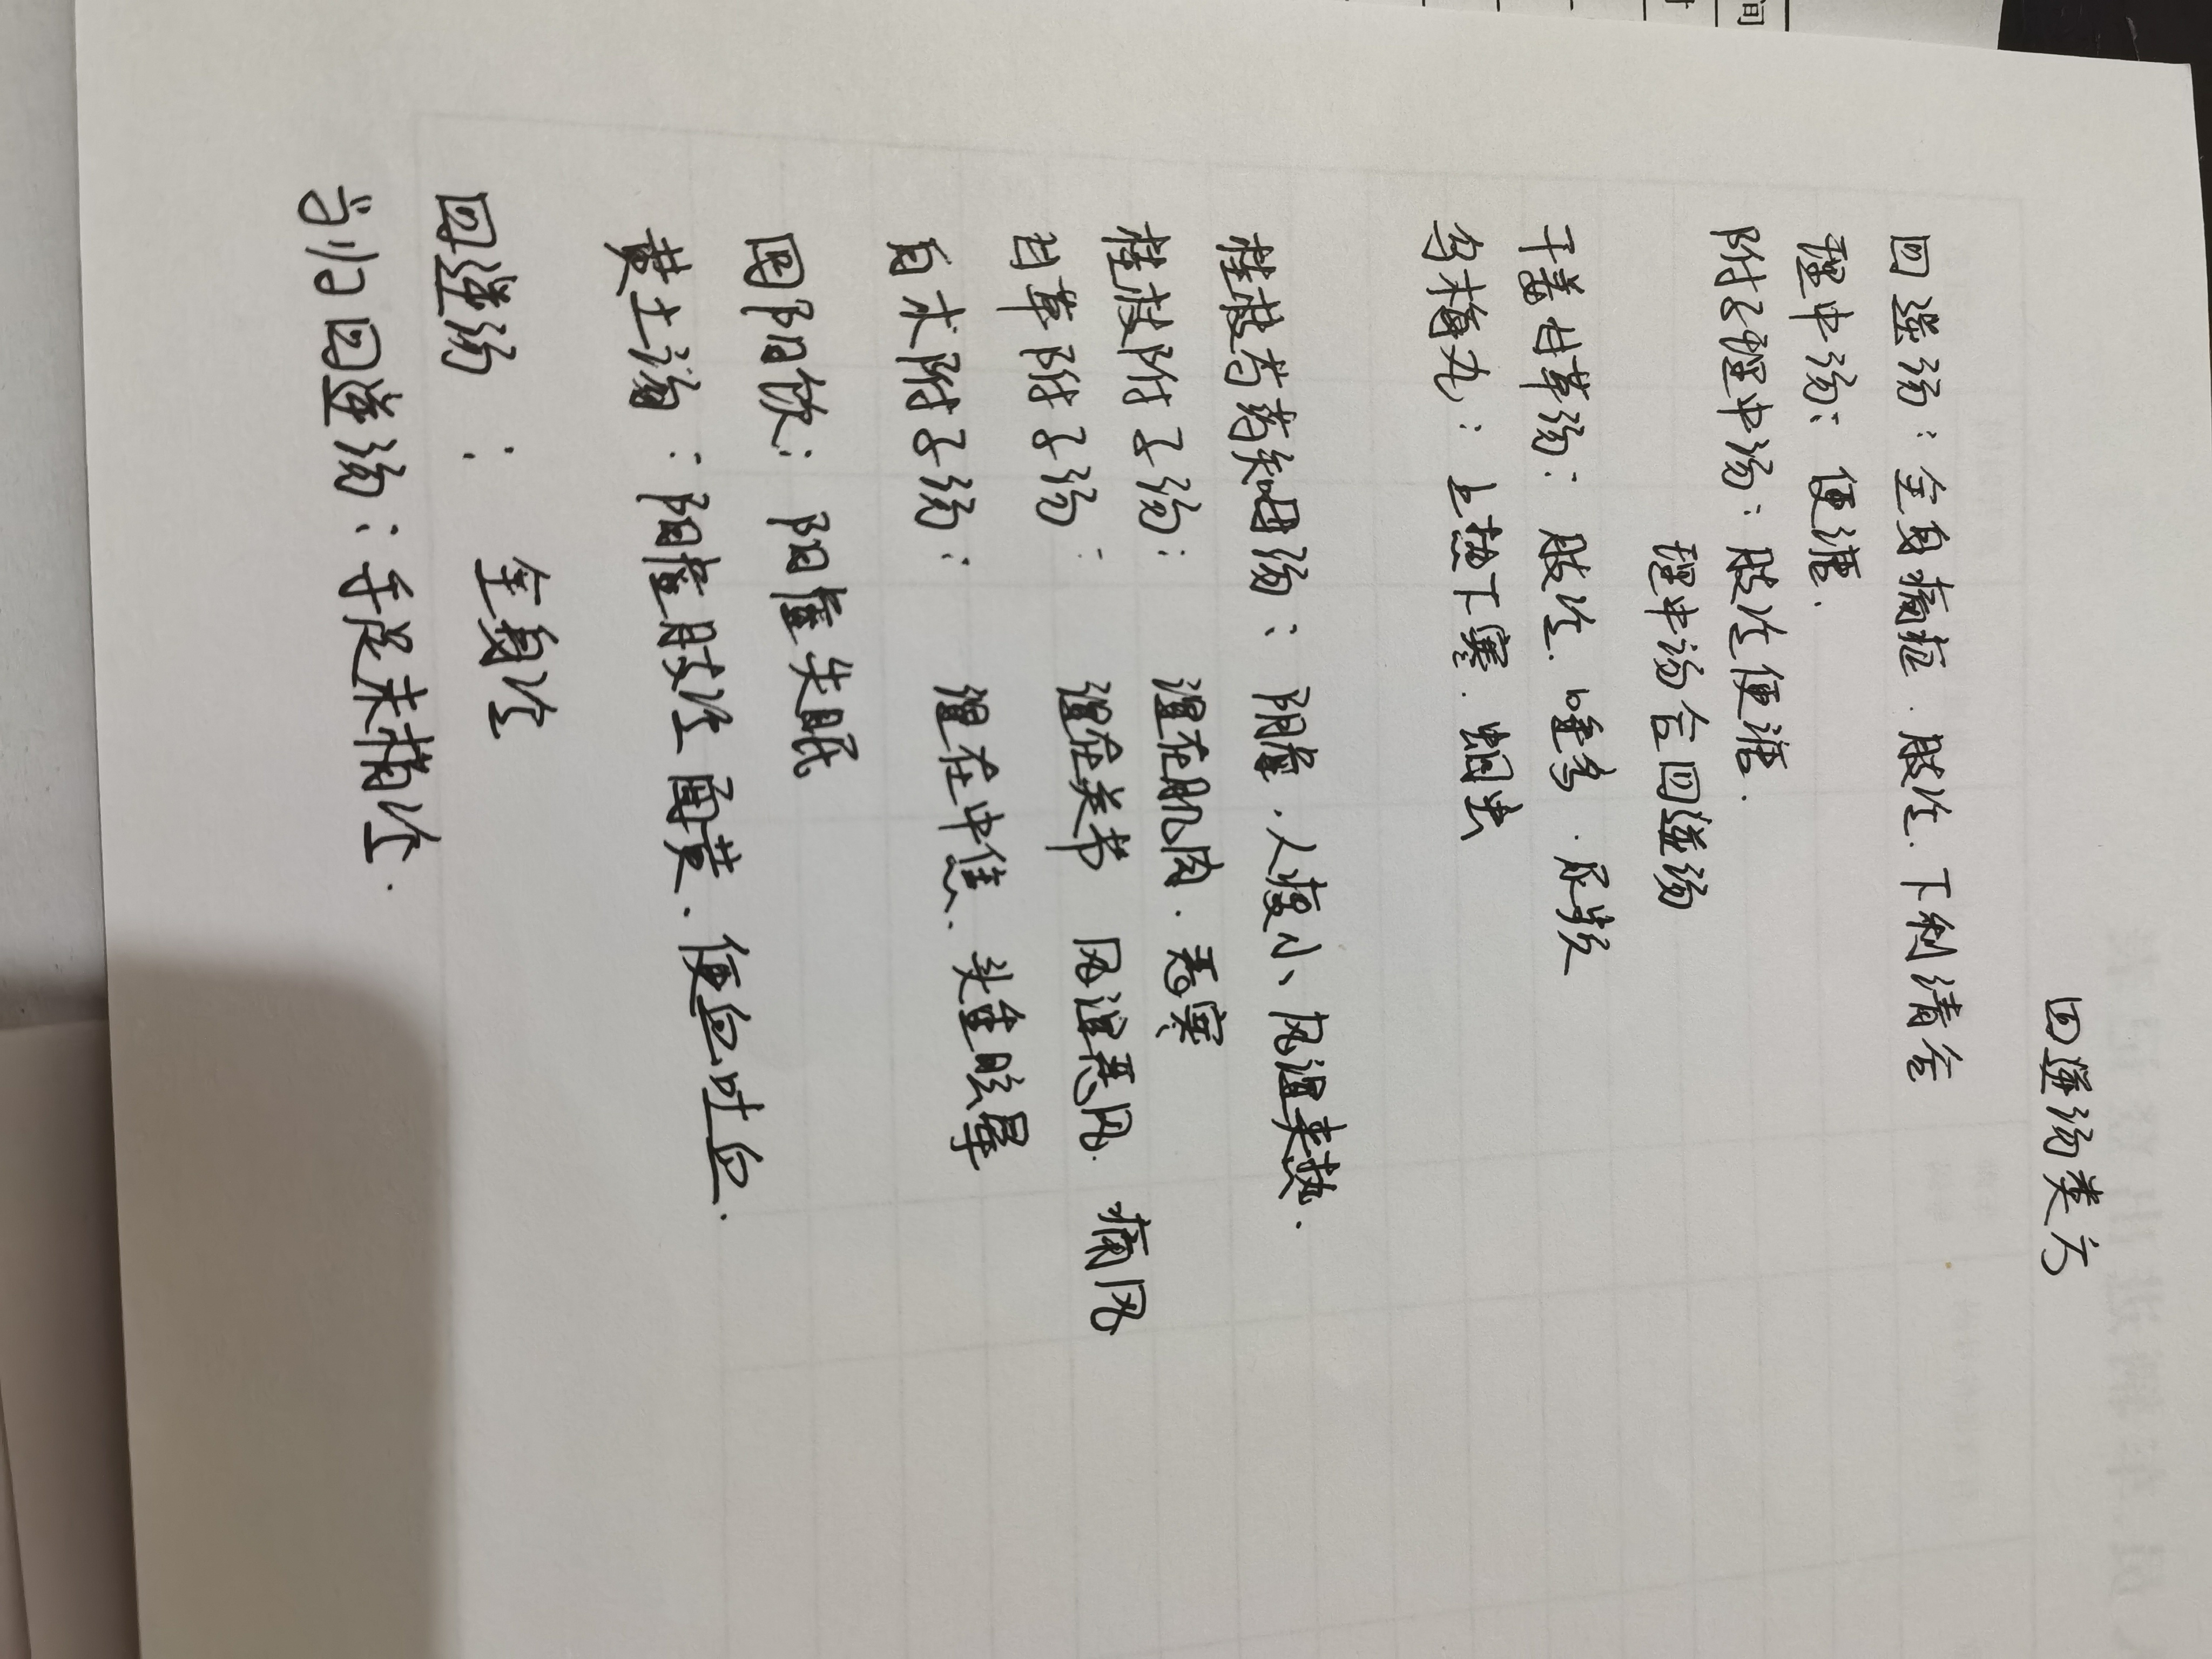 四逆汤类方
四逆汤：全身痛症．肢冷．下利清谷
理中汤：便溏．
附子理中汤：肢冷便溏．
理中汤合四逆汤
干姜甘草汤：肢冷．唾多．尿频
乌梅丸：上热下寒．蛔虫
桂枝芍药知母汤：阴虚．人瘦小、风湿夹热．
桂枝附子汤：湿在肌肉．恶寒
甘草附子汤：湿在关节 风湿恶风．痛风
白术附子汤：湿在中焦．头重眩晕
回阳饮：阳虚失眠
黄土汤：阳虚肢冷面黄．便血吐血．
四逆汤：全身冷
当归四逆汤：手足末梢冷．
间